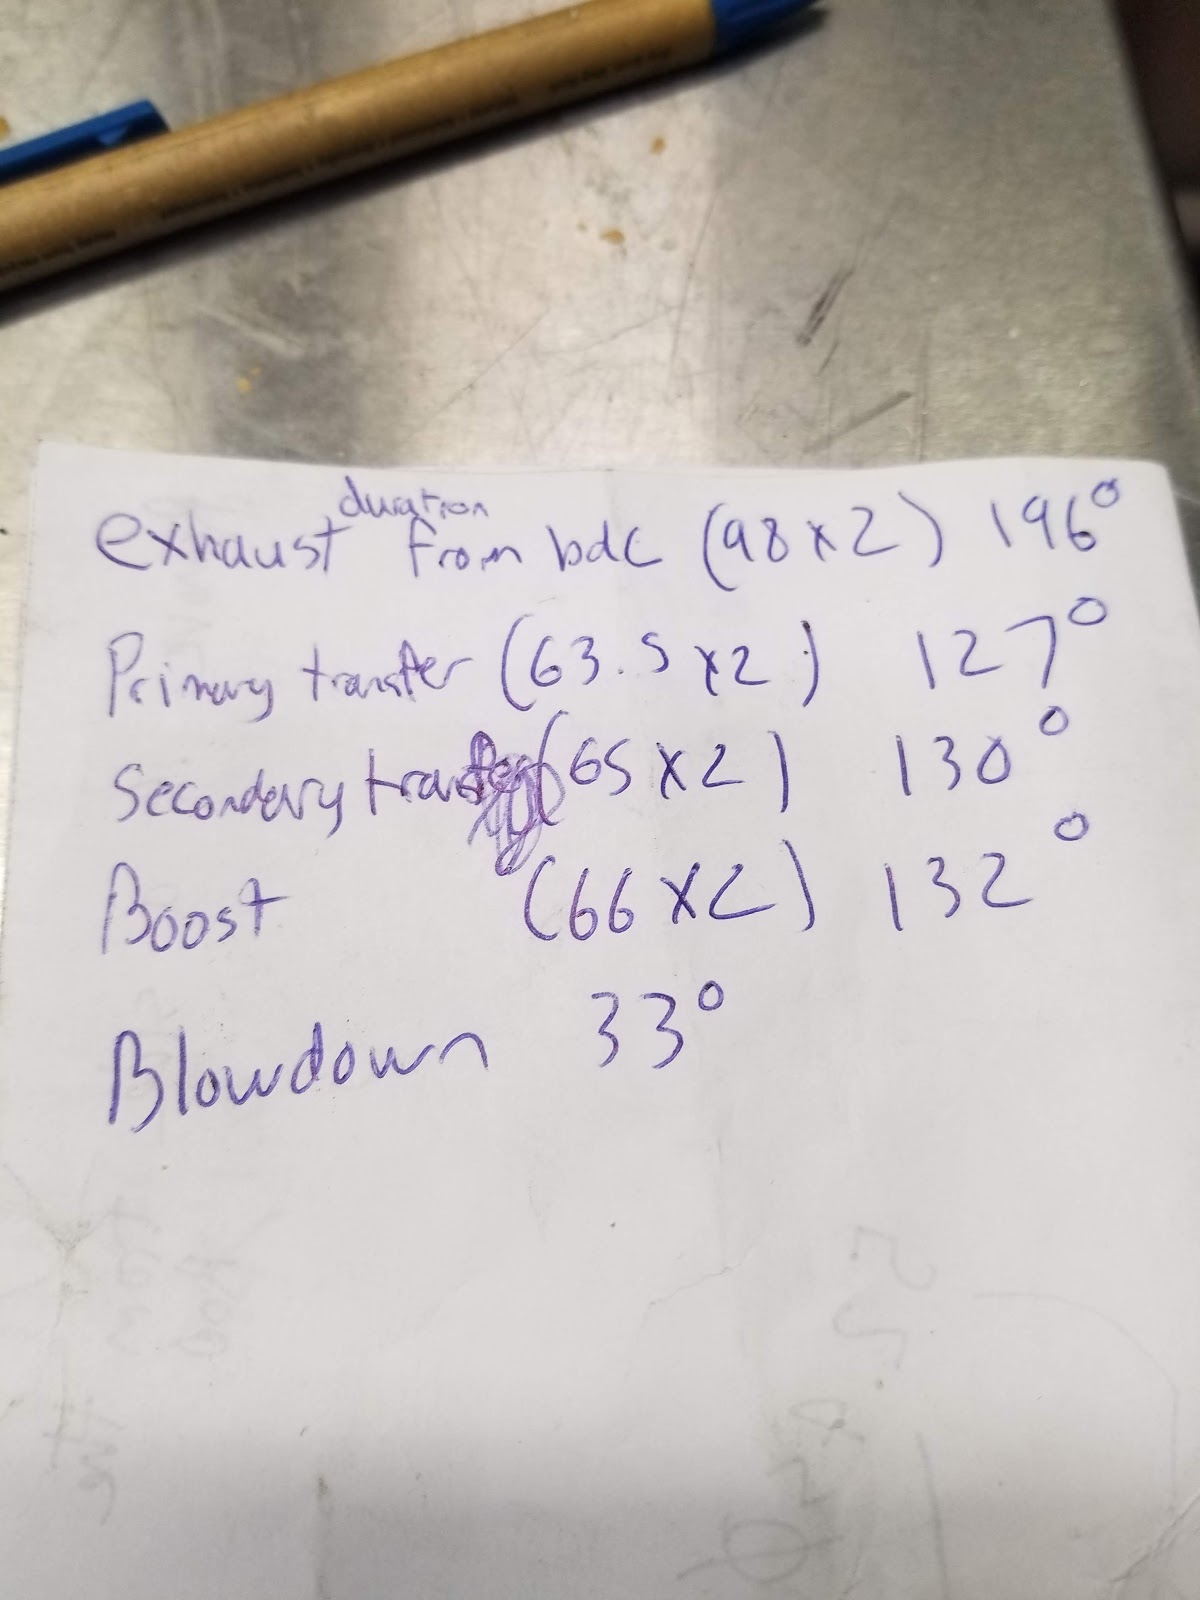 exhaust duration from bdc (98x2) 196°
Primary transfer (63.5 x2) 127°
Secondary transfer (65 x2) 130°
Boost (66 x2) 132°
Blowdown 33°